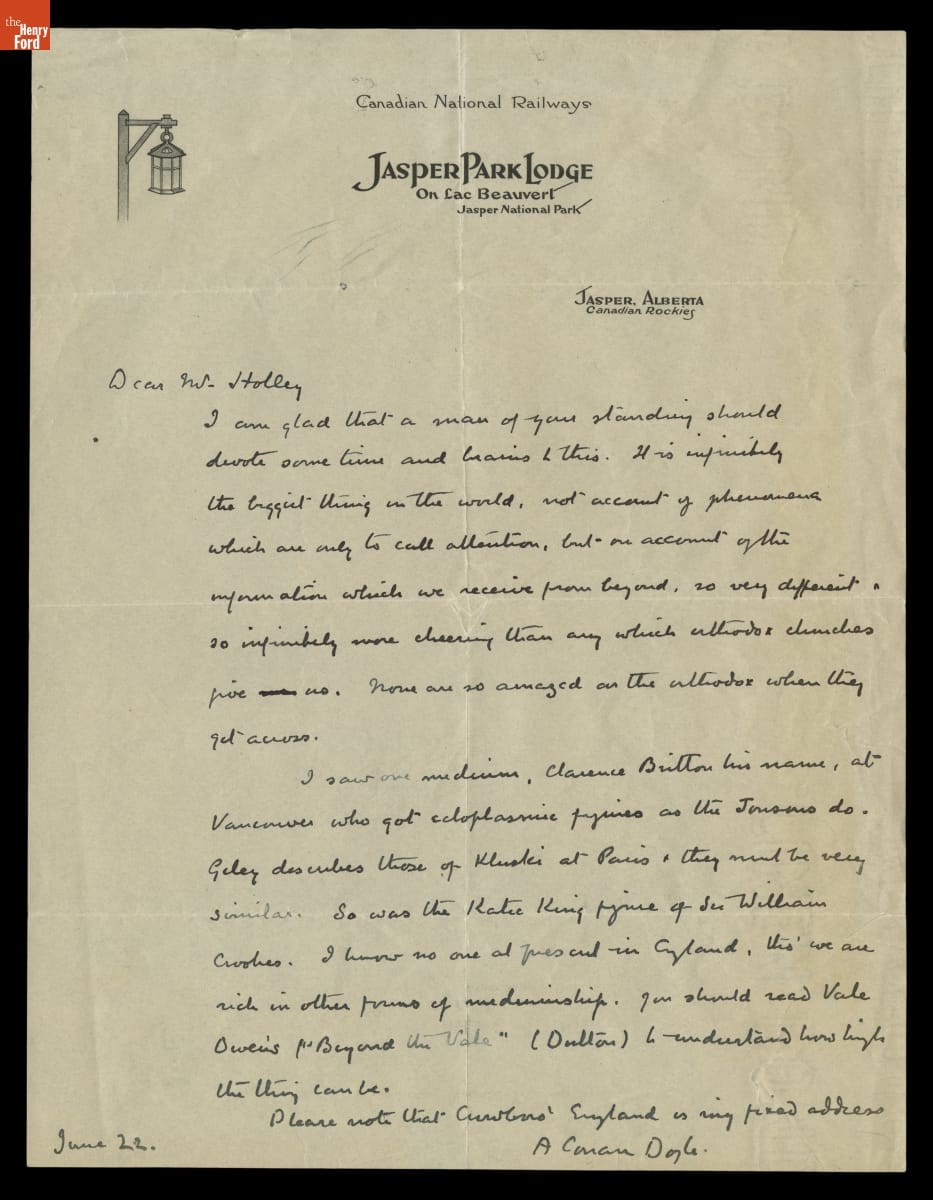 the
Henry
Ford
Canadian National Railways
JASPER PARK LODGE
On Lac Beauvert
Jasper National Park
JASPER, ALBERTA
Canadian Rockies
Dear Mr Holley
I am glad that a man of your standing should
devote some time and brains to this. It is infinitely
the biggest thing in the world, not account of phenomena
which are only to call attention, but on account of the
information which we receive from beyond, so very different &
so infinitely more cheering than any which orthodox churches
give us. None are so amazed as the orthodox when they
get across.
I saw one medium, Clarence Britton his name, at
Vancouver who got ectoplasmic figures as the Jonsons do.
Geley describes those of Kluski at Paris & they must be very
similar. So was the Katie King figure of Sir William
Crookes. I know no one at present in England, tho' we are
rich in other forms of mediumship. You should read Vale
Owen's "Beyond the Vale" (Dutton) to understand how high
the thing can be.
Please note that Crowboro' England is my fixed address
June 22.
A Conan Doyle.